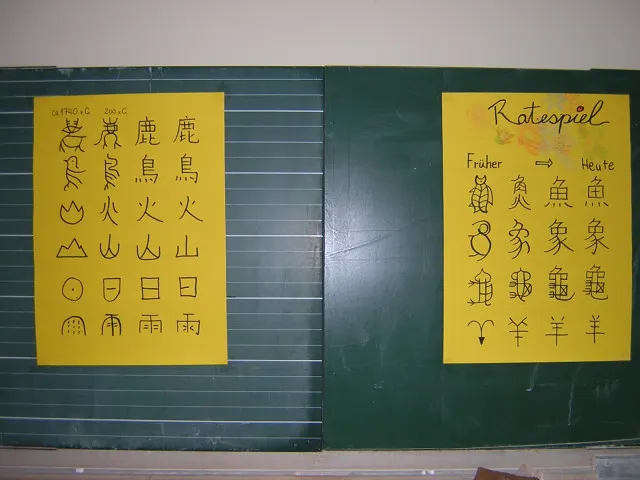 ca 1740 v.C. 200 v.C.
鹿 鹿
鳥 鳥
火 火 火
山 山 山
日 日 日
雨 雨 雨
Ratespiel
Früher ⇨ Heute
魚 魚
象 象
龜 龜
羊 羊 羊